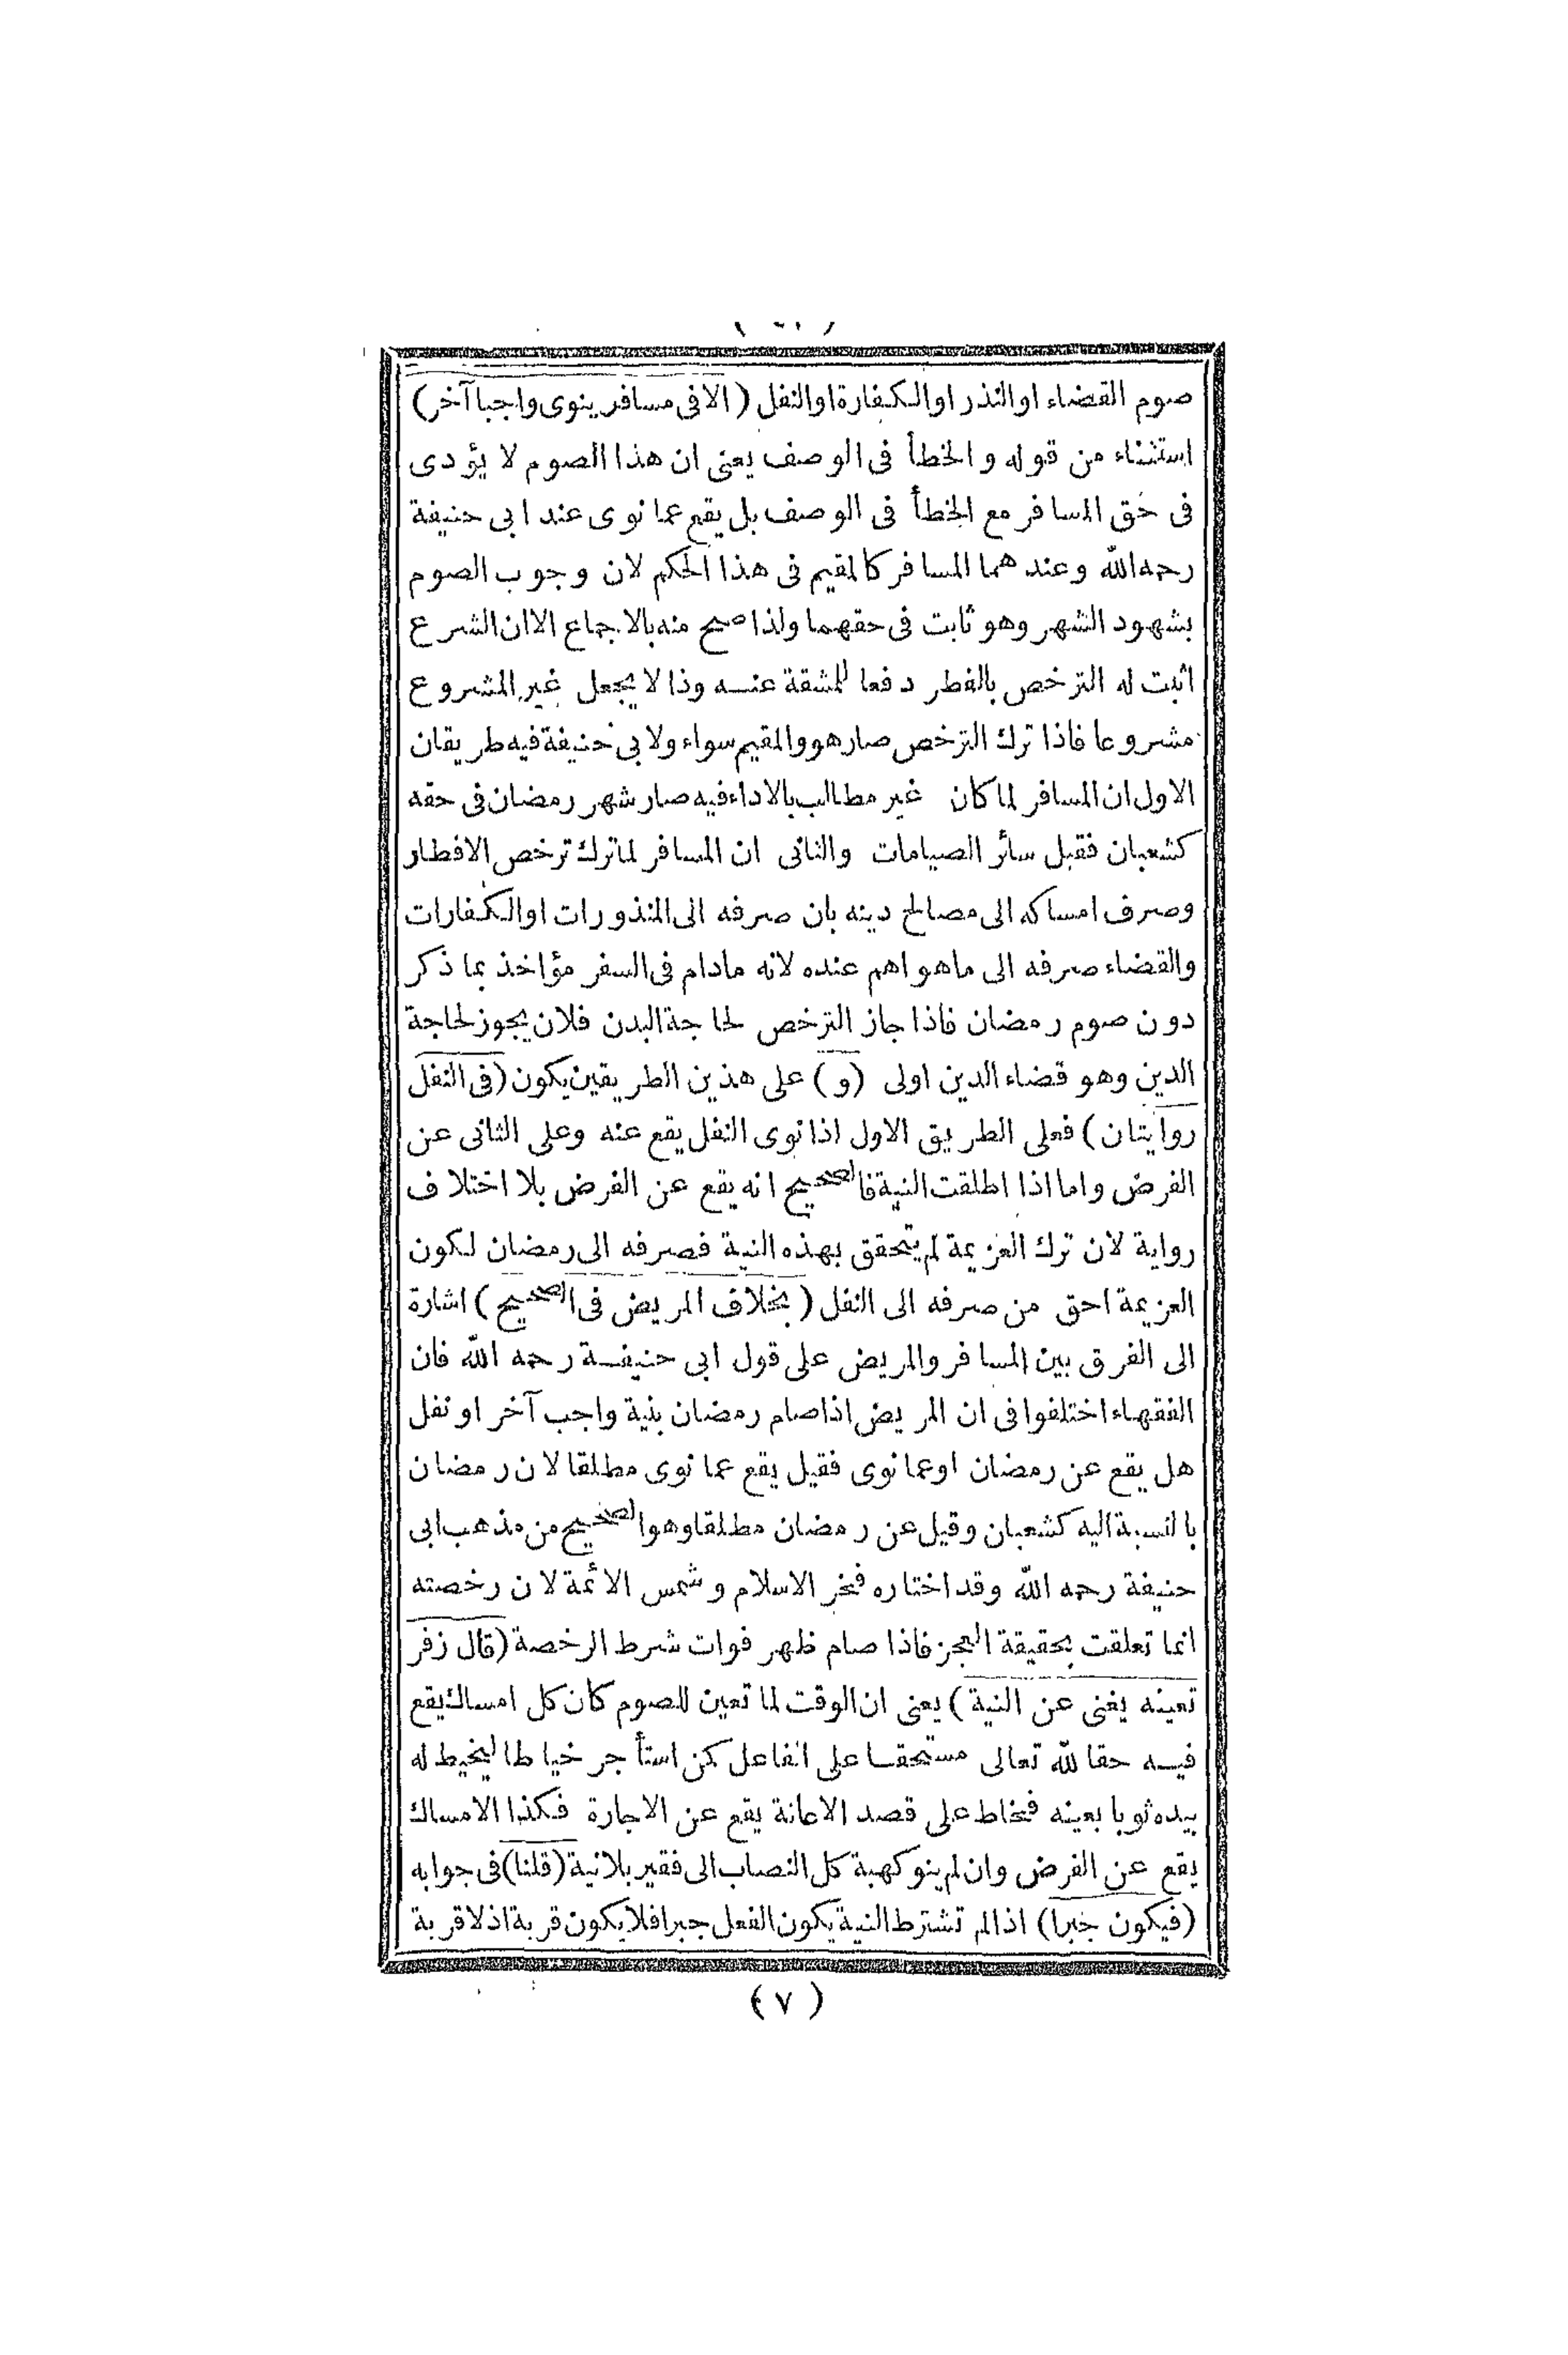 صوم القضاء او النذر او الكفارة او النفل ( الا فى مسافر ينوى واجبا آخر )
استثناء من قوله والخطأ فى الوصف يعنى ان هذا الصوم لا يؤدى
فى حق المسافر مع الخطأ فى الوصف بل يقع عما نوى عند ابى حنيفة
رحمه الله وعندهما المسافر كالمقيم فى هذا الحكم لان وجوب الصوم
بشهود الشهر وهو ثابت فى حقهما ولذا صح منه بالاجماع الا ان الشرع
اثبت له الترخص بالفطر دفعا للمشقة عنه وذا لا يجعل غير المشروع
مشروعا فاذا ترك الترخص صار هو والمقيم سواء ولابى حنيفة فيه طريقان
الاول ان المسافر لما كان غير مطالب بالاداء فيه صار شهر رمضان فى حقه
كشعبان فقبل سائر الصيامات والثانى ان المسافر لما ترك ترخص الافطار
وصرف امساكه الى مصالح دينه بان صرفه الى المنذورات او الكفارات
والقضاء صرفه الى ما هو اهم عنده لانه مادام فى السفر مؤاخذ بما ذكر
دون صوم رمضان فاذا جاز الترخص لحاجة البدن فلان يجوز لحاجة
الدين وهو قضاء الدين اولى ( و ) على هذين الطريقين يكون ( فى النفل
روايتان ) فعلى الطريق الاول اذا نوى النفل يقع عنه وعلى الثانى عن
الفرض واما اذا اطلقت النية فالصحيح انه يقع عن الفرض بلا اختلاف
رواية لان ترك العزيمة لم يتحقق بهذه النية فصرفه الى رمضان لكون
العزيمة احق من صرفه الى النفل ( بخلاف المريض فى الصحيح ) اشارة
الى الفرق بين المسافر والمريض على قول ابى حنيفة رحمه الله فان
الفقهاء اختلفوا فى ان المريض اذا صام رمضان بنية واجب آخر او نفل
هل يقع عن رمضان او عما نوى فقيل يقع عما نوى مطلقا لان رمضان
بالنسبة اليه كشعبان وقيل عن رمضان مطلقا وهو الصحيح من مذهب ابى
حنيفة رحمه الله وقد اختاره فخر الاسلام وشمس الائمة لان رخصته
انما تعلقت بحقيقة العجز فاذا صام ظهر فوات شرط الرخصة ( قال زفر
تعينه يغنى عن النية ) يعنى ان الوقت لما تعين للصوم كان كل امساك يقع
فيه حقا لله تعالى مستحقا على الفاعل كمن استأجر خياطا ليخيط له
بيده ثوبا بعينه فخاط على قصد الاعانة يقع عن الاجارة فكذا الامساك
يقع عن الفرض وان لم ينو كهبة كل النصاب الى فقير بلانية ( قلنا ) فى جوابه
( فيكون جبرا ) اذا لم تشترط النية يكون الفعل جبرا فلا يكون قربة اذ لا قربة
( ٧ )